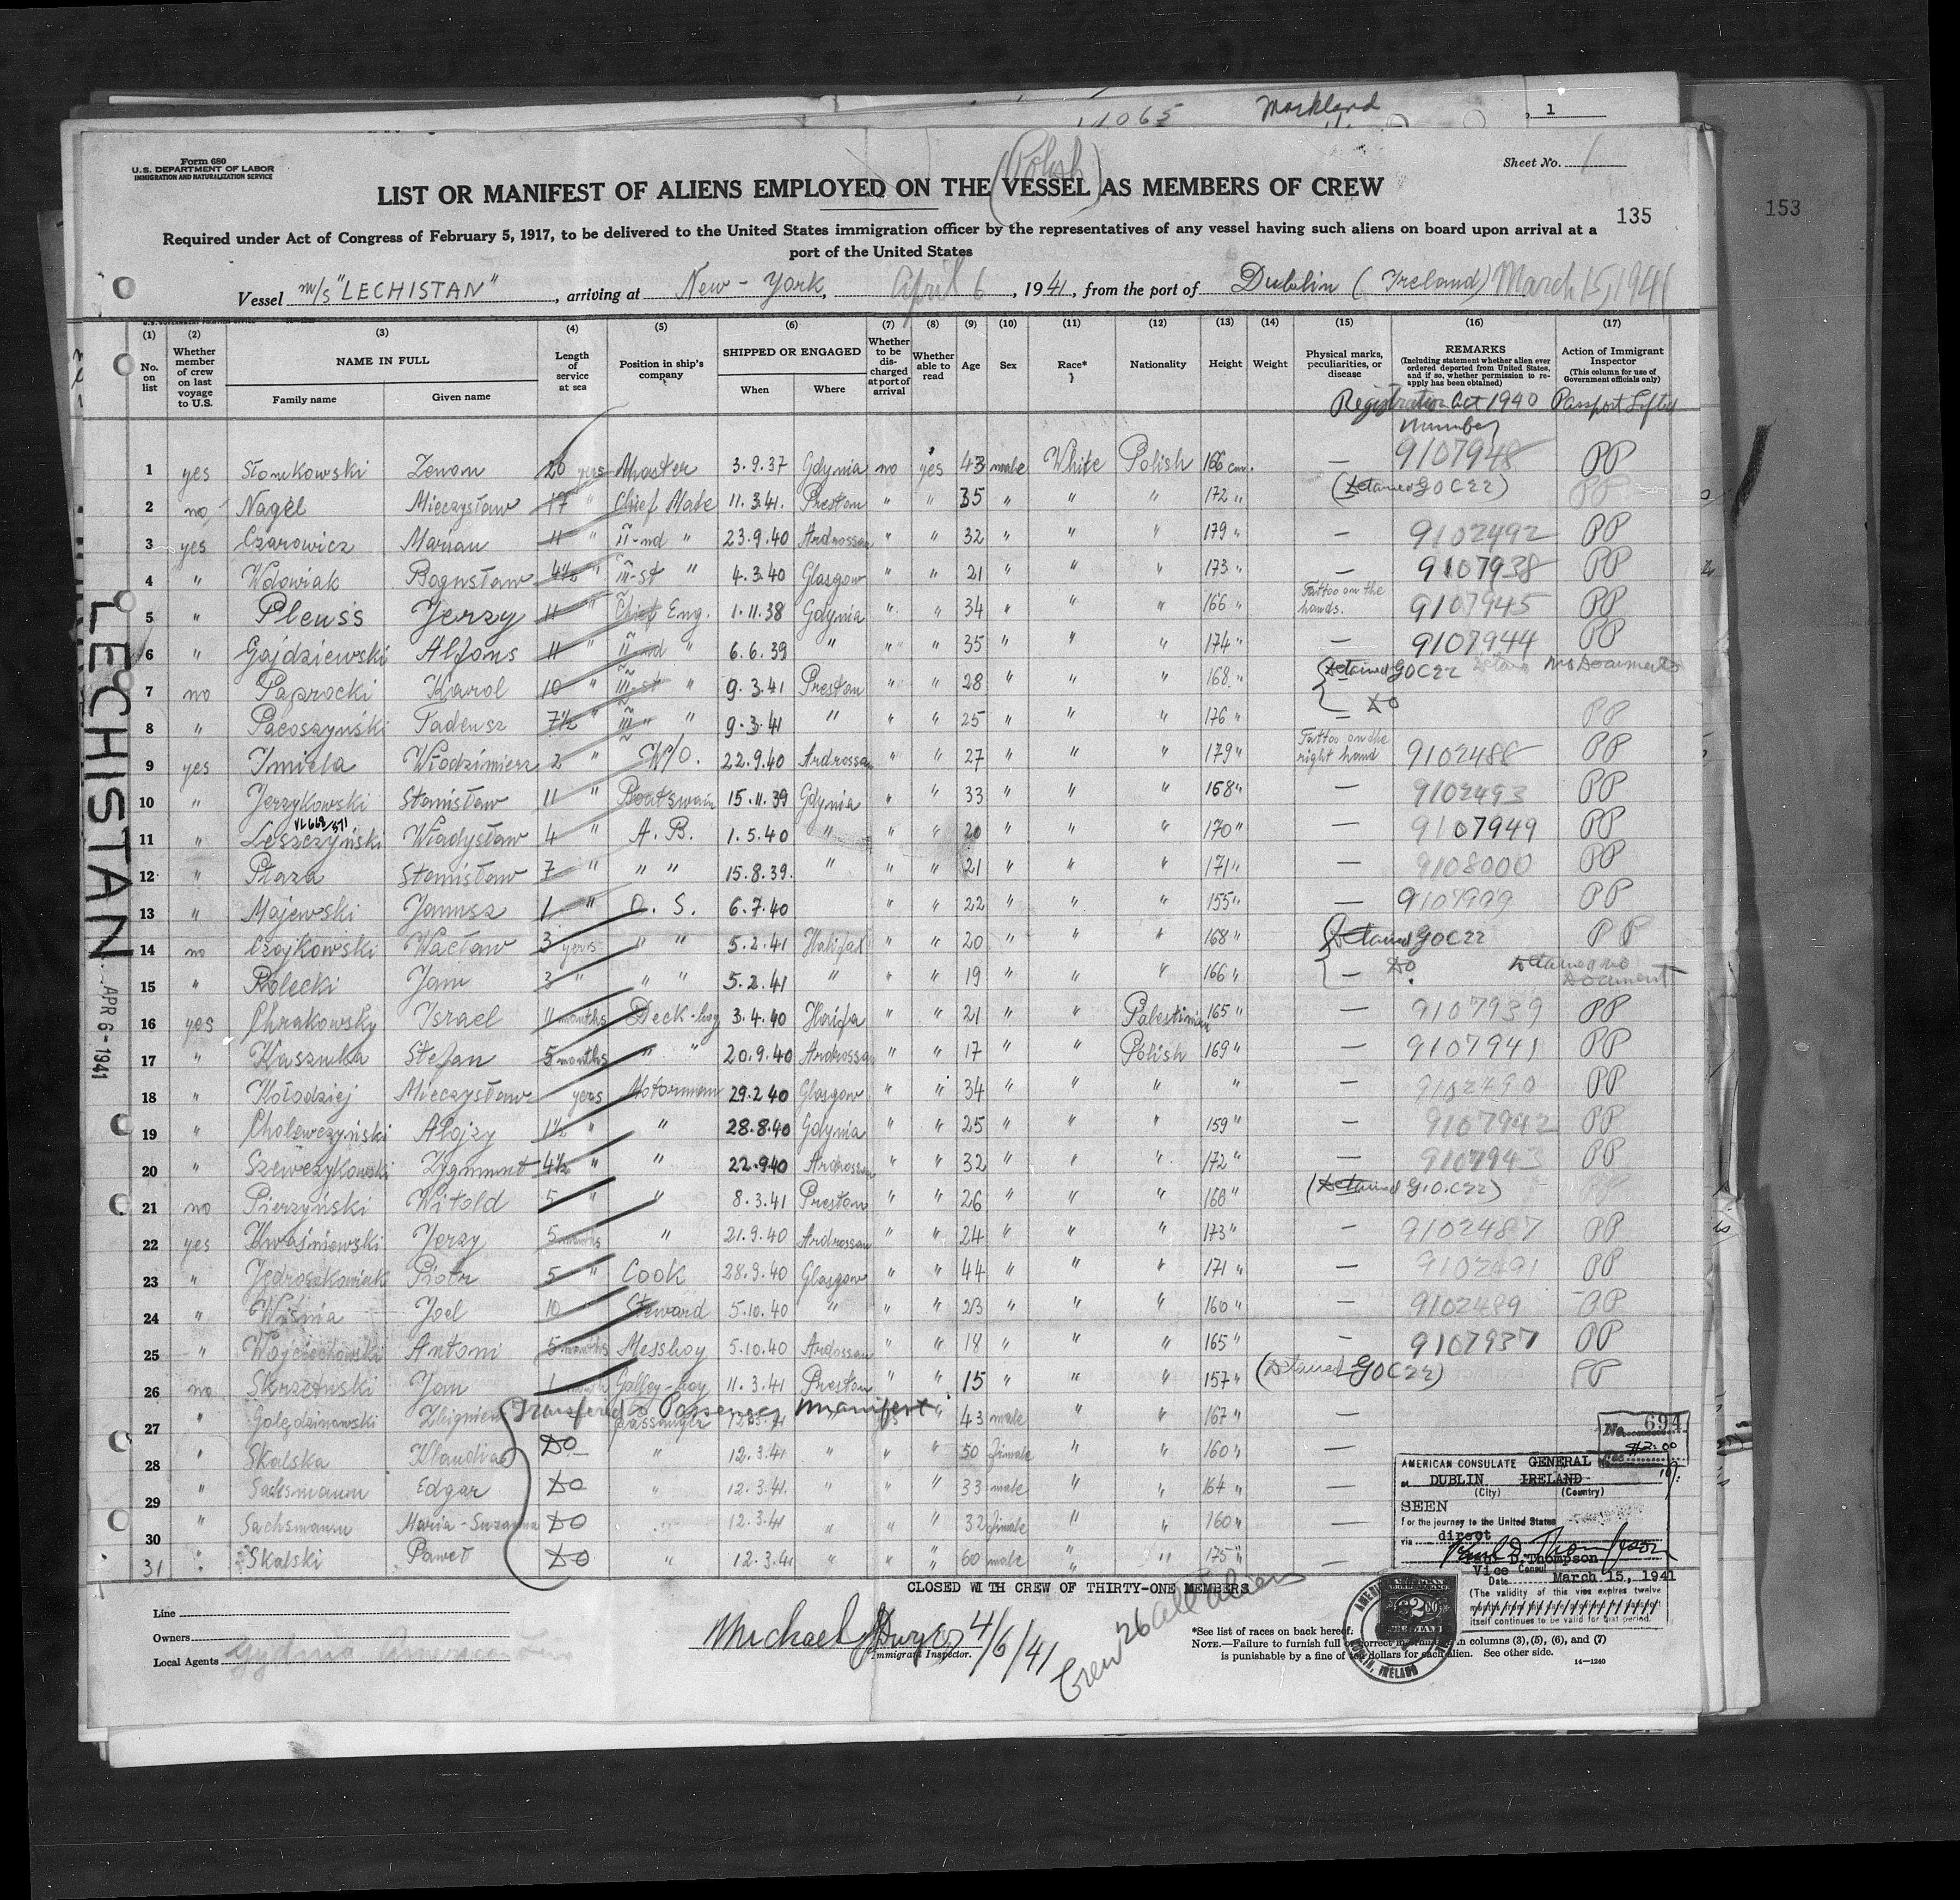 Markland
11065
1
Form 680
U.S. DEPARTMENT OF LABOR
IMMIGRATION AND NATURALIZATION SERVICE
(Polish)
Sheet No. 1
LIST OR MANIFEST OF ALIENS EMPLOYED ON THE VESSEL AS MEMBERS OF CREW
135
153
Required under Act of Congress of February 5, 1917, to be delivered to the United States immigration officer by the representatives of any vessel having such aliens on board upon arrival at a
port of the United States
Vessel m/s "LECHISTAN", arriving at New-York, April 6, 1941, from the port of Dublin (Ireland) March 15, 1941
(1) (2) (3) (4) (5) (6) (7) (8) (9) (10) (11) (12) (13) (14) (15) (16) (17)
No. on list
Whether member of crew on last voyage to U.S.
NAME IN FULL
Family name Given name
Length of service at sea
Position in ship's company
SHIPPED OR ENGAGED
When Where
Whether to be discharged at port of arrival
Whether able to read
Age
Sex
Race*
Nationality
Height
Weight
Physical marks, peculiarities, or disease
REMARKS
(Including statement whether alien ever ordered deported from United States, and if so, whether permission to reapply has been obtained)
Action of Immigrant Inspector
(This column for use of Government officials only)
Registration Act 1940 Passport
number
1 yes Słomkowski Zenon 20 yers Master 3.9.37 Gdynia no yes 43 male White Polish 166 cm. — 9107948 PP
2 no Nagel Mieczysław 17 " Chief Mate 11.3.41. Preston " " 35 " " " 172 " (Detained GOC22) PP
3 yes Czarowicz Marian 11 " II-nd " 23.9.40 Ardrossan " " 32 " " " 179 " — 9102492 PP
4 " Wdowiak Bogusław 4½ " III-st " 4.3.40 Glasgow " " 21 " " " 173 " — 9107938 PP
5 " Pleuss Jerzy 11 " Chief Eng. 1.11.38 Gdynia " " 34 " " " 166 " Tattoo on the hands. 9107945 PP
6 " Gajdziewski Alfons 11 " II nd " 6.6.39 " " " 35 " " " 174 " — 9107944 PP
7 no Paprocki Karol 10 " III-st " 9.3.41 Preston " " 28 " " " 168 " Detained GOC22 no Documents
8 " Pacoszyński Tadeusz 7½ " III " " 9.3.41 " " " 25 " " " 176 " — DO PP
9 yes Imiela Włodzimierz 2 " W/O. 22.9.40 Ardrossan " " 27 " " " 179 " Tattoo on the right hand 9102488 PP
10 " Jerzykowski Stanisław 11 " Boatswain 15.11.39 Gdynia " " 33 " " " 168 " — 9102493 PP
11 " Leszczyński Władysław 4 " A. B. 1.5.40 " " " 20 " " " 170 " — 9107949 PP
12 " Płaza Stanisław 7 " " " 15.8.39. " " " 21 " " " 171 " — 9108000 PP
13 " Majewski Janusz 1 " O. S. 6.7.40 " " 22 " " " 155 " — 9107999 PP
14 no Czajkowski Wacław 3 yers " " 5.2.41 Halifax " " 20 " " " 168 " Detained GOC22 PP
15 " Rolecki Jan 3 " " " 5.2.41 " " " 19 " " " 166 " — DO. Detained no Document
16 yes Chrakowsky Israel 11 months Deck-boy 3.4.40 Haifa " " 21 " " Palestinian 165 " — 9107939 PP
17 " Kaszuba Stefan 5 months " " 20.9.40 Ardrossan " " 17 " " Polish 169 " — 9107941 PP
18 " Kołodziej Mieczysław yers Motorman 29.2.40 Glasgow " " 34 " " " " — 9102490 PP
19 " Cholewczyński Alojzy 1½ " " 28.8.40 Gdynia " " 25 " " " 159 " — 9107942 PP
20 " Szewczykowski Zygmunt 4½ " " 22.9.40 Ardrossan " " 32 " " " 172 " — 9107943 PP
21 no Pierzyński Witold 5 " " 8.3.41 Preston " " 26 " " " 168 " (Detained G.O.C22)
22 yes Kwaśniewski Jerzy 5 months " 21.9.40 Ardrossan " " 24 " " " 173 " — 9102487 PP
23 " Jędroszkowiak Piotr 5 " Cook 28.9.40 Glasgow " " 44 " " " 171 " — 9102491 PP
24 " Wiśnia Joel 10 " Steward 5.10.40 " " " 23 " " " 160 " — 9102489 PP
25 " Wojciechowski Antoni 5 months Messboy 5.10.40 Ardossan " " 18 " " " 165 " — 9107937 PP
26 no Skrzetuski Jan 1 month Galley-boy 11.3.41 Preston " " 15 " " " 157 " (Detained GOC22) PP
Transferred to Passenger Manifest
27 " Golędzinowski Zbigniew passanger 12.3.41 " 43 male " " 167 " —
28 " Skalska Klaudia DO " 12.3.41 " " " 50 fimale " " 160 " —
29 " Sachsmann Edgar DO " 12.3.41. " " " 33 male " " 164 " —
30 " Sachsmann Maria-Suzanna DO " 12.3.41 " " " 32 fimale " " 160 " —
31 " Skalski Paweł DO " 12.3.41 " " " 60 male " " 175 " —
LECHISTAN
APR 6-1941
No. 694
$2.00
AMERICAN CONSULATE GENERAL
at DUBLIN IRELAND
(City) (Country)
SEEN
for the journey to the United States
via direct
Paul D. Thompson
Vice Consul
Date March 15, 1941
(The validity of this visa expires twelve
itself continues to be valid for that period.
CLOSED WITH CREW OF THIRTY-ONE MEMBERS
Crew 26 all aliens
Line
Owners
Local Agents Gydnia America Line
Michael J Dwyer 4/6/41
Immigrant Inspector.
*See list of races on back hereof.
NOTE.—Failure to furnish full or correct information in columns (3), (5), (6), and (7)
is punishable by a fine of ten dollars for each alien. See other side.
14—1240
DUBLIN, IRELAND